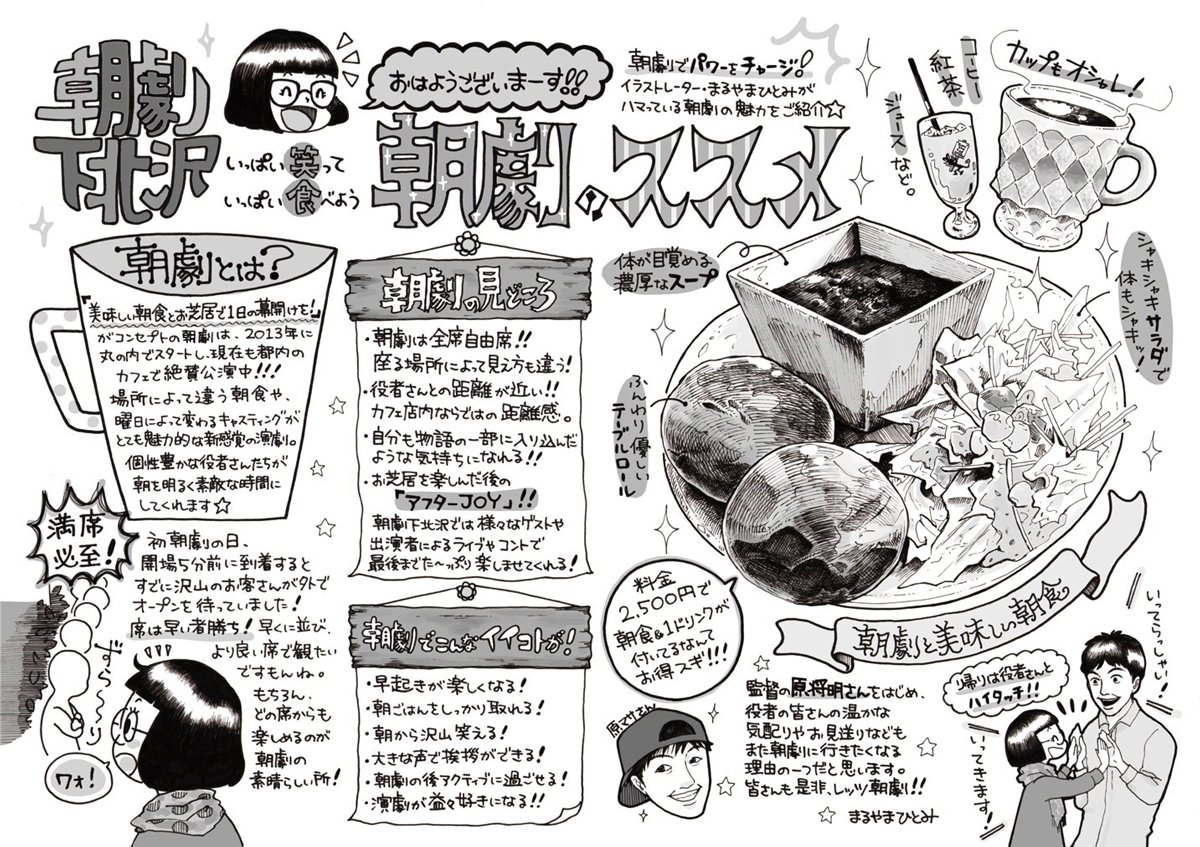 朝劇
下北沢
おはようございまーす!!
朝劇でパワーをチャージ!
イラストレーター・まるやまひとみが
ハマっている朝劇の魅力をご紹介☆
いっぱい笑って
いっぱい食べよう
朝劇のススメ
コーヒー
紅茶
ジュースなど。
カップもオシャレ!
朝劇とは?
『美味しい朝食とお芝居で1日の幕開けを!』
がコンセプトの朝劇は、2013年に
丸の内でスタートし、現在も都内の
カフェで絶賛公演中!!!
場所によって違う朝食や、
曜日によって変わるキャスティングが
とても魅力的な新感覚の演劇。
個性豊かな役者さんたちが
朝を明るく素敵な時間に
してくれます☆
満席
必至!
初朝劇の日、
開場5分前に到着すると
すでに沢山のお客さんが外で
オープンを待っていました!
席は早い者勝ち!早くに並び、
より良い席で観たい
ですもんね。
もちろん、
どの席からも
楽しめるのが
朝劇の
素晴らしい所!
ずら〜り
ワォ!
朝劇の見どころ
・朝劇は全席自由席!!
座る場所によって見え方も違う!
・役者さんとの距離が近い!!
カフェ店内ならではの距離感。
・自分も物語の一部に入り込んだ
ような気持ちになれる!!
・お芝居を楽しんだ後の
「アフターJOY」!!
朝劇下北沢では様々なゲストや
出演者によるライブやコントで
最後までた〜っぷり楽しませてくれる!
朝劇でこんなイイコトが!
・早起きが楽しくなる!
・朝ごはんをしっかり取れる!
・朝から沢山笑える!
・大きな声で挨拶ができる!
・朝劇の後アクティブに過ごせる!
・演劇が益々好きになる!!
体が目覚める
濃厚なスープ
シャキシャキサラダで
体もシャキッ!
ふんわり優しい
テーブルロール
朝劇と美味しい朝食
料金
2,500円で
朝食&1ドリンクが
付いてるなんて
お得スギ!!!
原マサさん
監督の原将明さんをはじめ、
役者の皆さんの温かな
気配りやお見送りなども
また朝劇に行きたくなる
理由の一つだと思います。
皆さんも是非、レッツ朝劇!!
まるやまひとみ
帰りは役者さんと
ハイタッチ!!
いってらっしゃい!
いってきます!